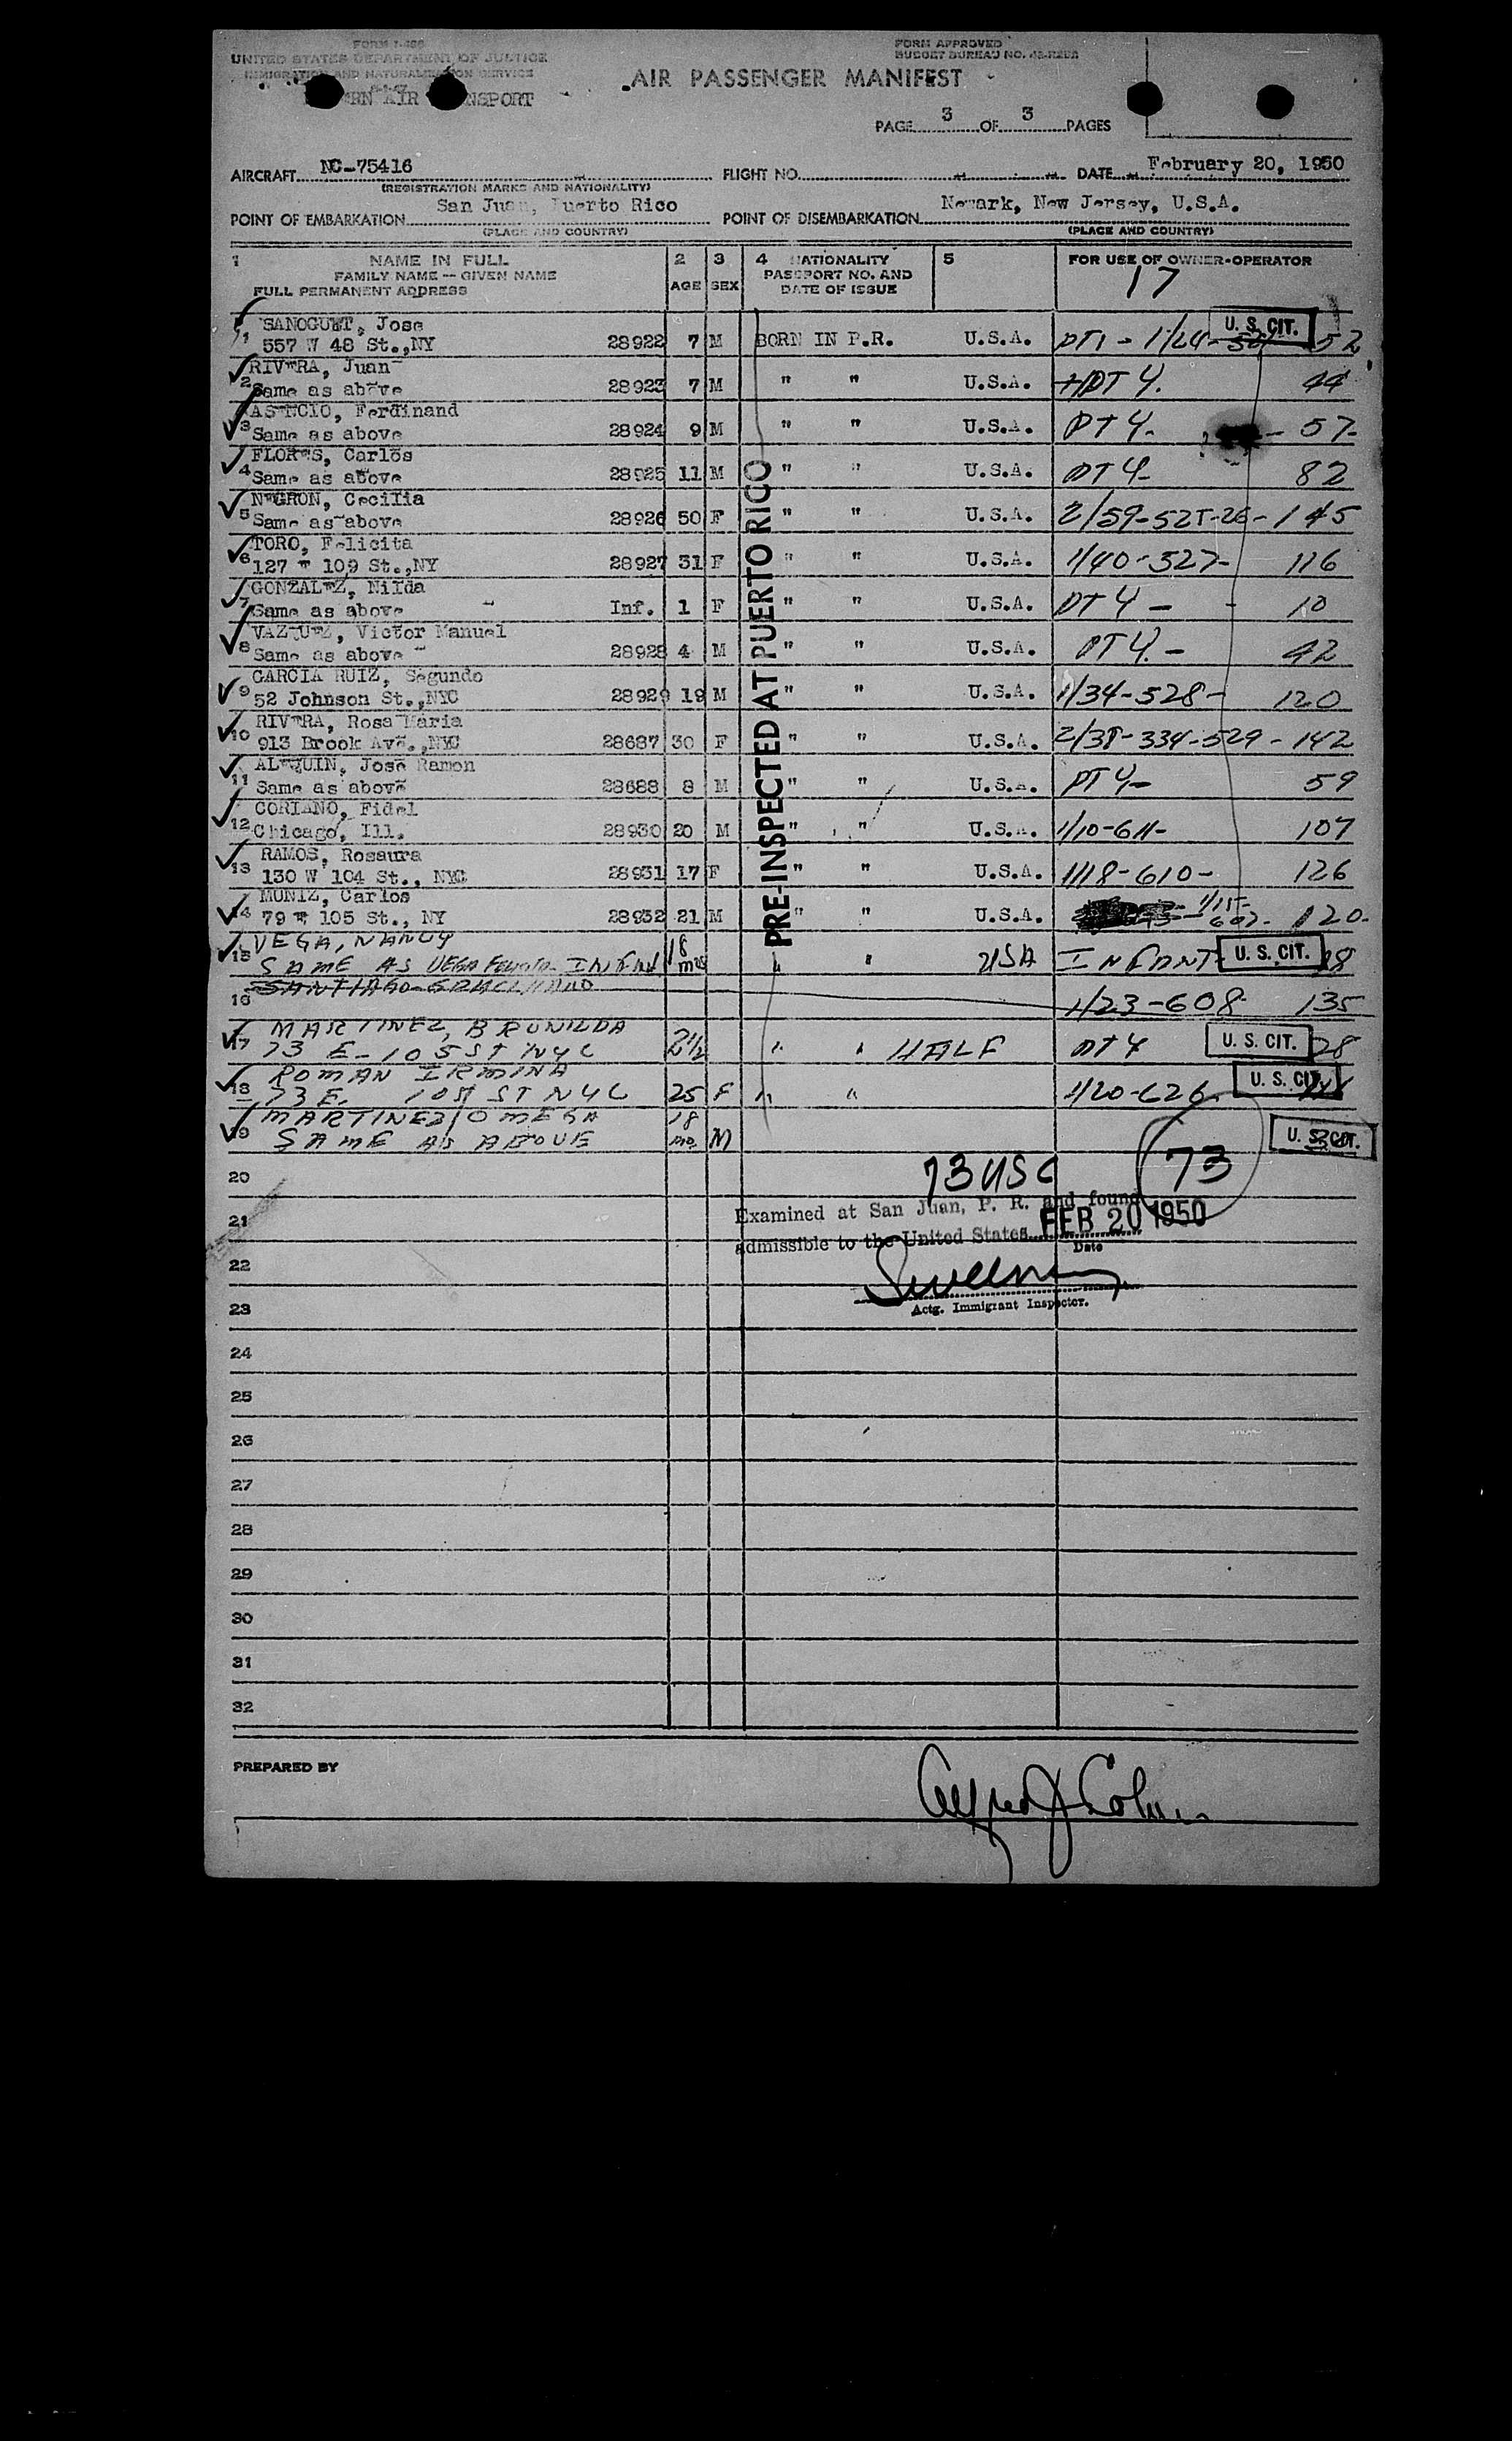 FORM I-466
UNITED STATES DEPARTMENT OF JUSTICE
IMMIGRATION AND NATURALIZATION SERVICE
FORM APPROVED
BUDGET BUREAU NO.
AIR PASSENGER MANIFEST
AIR
PAGE 3 OF 3 PAGES
AIRCRAFT NC-75416 FLIGHT NO. DATE February 20, 1950
(REGISTRATION MARKS AND NATIONALITY)
POINT OF EMBARKATION San Juan, Puerto Rico POINT OF DISEMBARKATION Newark, New Jersey, U.S.A.
(PLACE AND COUNTRY) (PLACE AND COUNTRY)
1 NAME IN FULL 2 3 4 NATIONALITY 5 FOR USE OF OWNER-OPERATOR
FAMILY NAME -- GIVEN NAME AGE SEX PASSPORT NO. AND 17
FULL PERMANENT ADDRESS DATE OF ISSUE
SANOGUET, Jose U. S. CIT.
1 557 W 48 St.,NY 28922 7 M BORN IN P.R. U.S.A. 52
RIVERA, Juan
2 Same as above 28923 7 M " " U.S.A. 44
ASENCIO, Ferdinand
3 Same as above 28924 9 M " " U.S.A. PT 4- 57-
FLORES, Carlos
4 Same as above 28925 11 M " " U.S.A. PT 4- 82
NEGRON, Cecilia
5 Same as above 28926 50 F " " U.S.A. 2/59-525-26-145
TORO, Felicita
6 127 E 109 St.,NY 28927 31 F " " U.S.A. 1/40-527- 116
GONZALEZ, Nilda
7 Same as above Inf. 1 F " " U.S.A. PT 4 - - 10
VAZQUEZ, Victor Manuel
8 Same as above 28928 4 M " " U.S.A. PT 4.- 42
GARCIA RUIZ, Segundo
9 52 Johnson St.,NYC 28929 19 M " " U.S.A. 1/34-528- 120
RIVERA, Rosa Maria
10 913 Brook Ave.,NYC 28687 30 F " " U.S.A. 2/38-334-529-142
ALEQUIN, Jose Ramon
11 Same as above 28688 8 M " " U.S.A. PT 4- 59
CORIANO, Fidel
12 Chicago, Ill. 28930 20 M " " U.S.A. 1/10-611- 107
RAMOS, Rosaura
13 130 W 104 St., NYC 28931 17 F " " U.S.A. 1/18-610- 126
MUNIZ, Carlos
14 79 E 105 St., NY 28932 21 M " " U.S.A. 120-
VEGA, NANCY 18
15 SAME AS VEGA INFANT mos " " USA INFANT U. S. CIT. 28
16 SANTIAGO GRACILIANO 1/23-608- 135
MARTINEZ, BRUNILDA
17 73 E-105 ST NYC 2½ " " HALF PT 4 U. S. CIT. 28
ROMAN IRMINA
18 73 E. 105 ST NYC 25 F " " 1/20-626- U. S. CIT.
MARTINEZ, OMEGA 18
19 SAME AS ABOVE mo. M U. S. CIT.
PRE-INSPECTED AT PUERTO RICO
20 73 USC 73
21 Examined at San Juan, P. R. and found
admissible to the United States FEB 20 1950
22 Date
Sweeney
23 Actg. Immigrant Inspector.
24
25
26
27
28
29
30
31
32
PREPARED BY